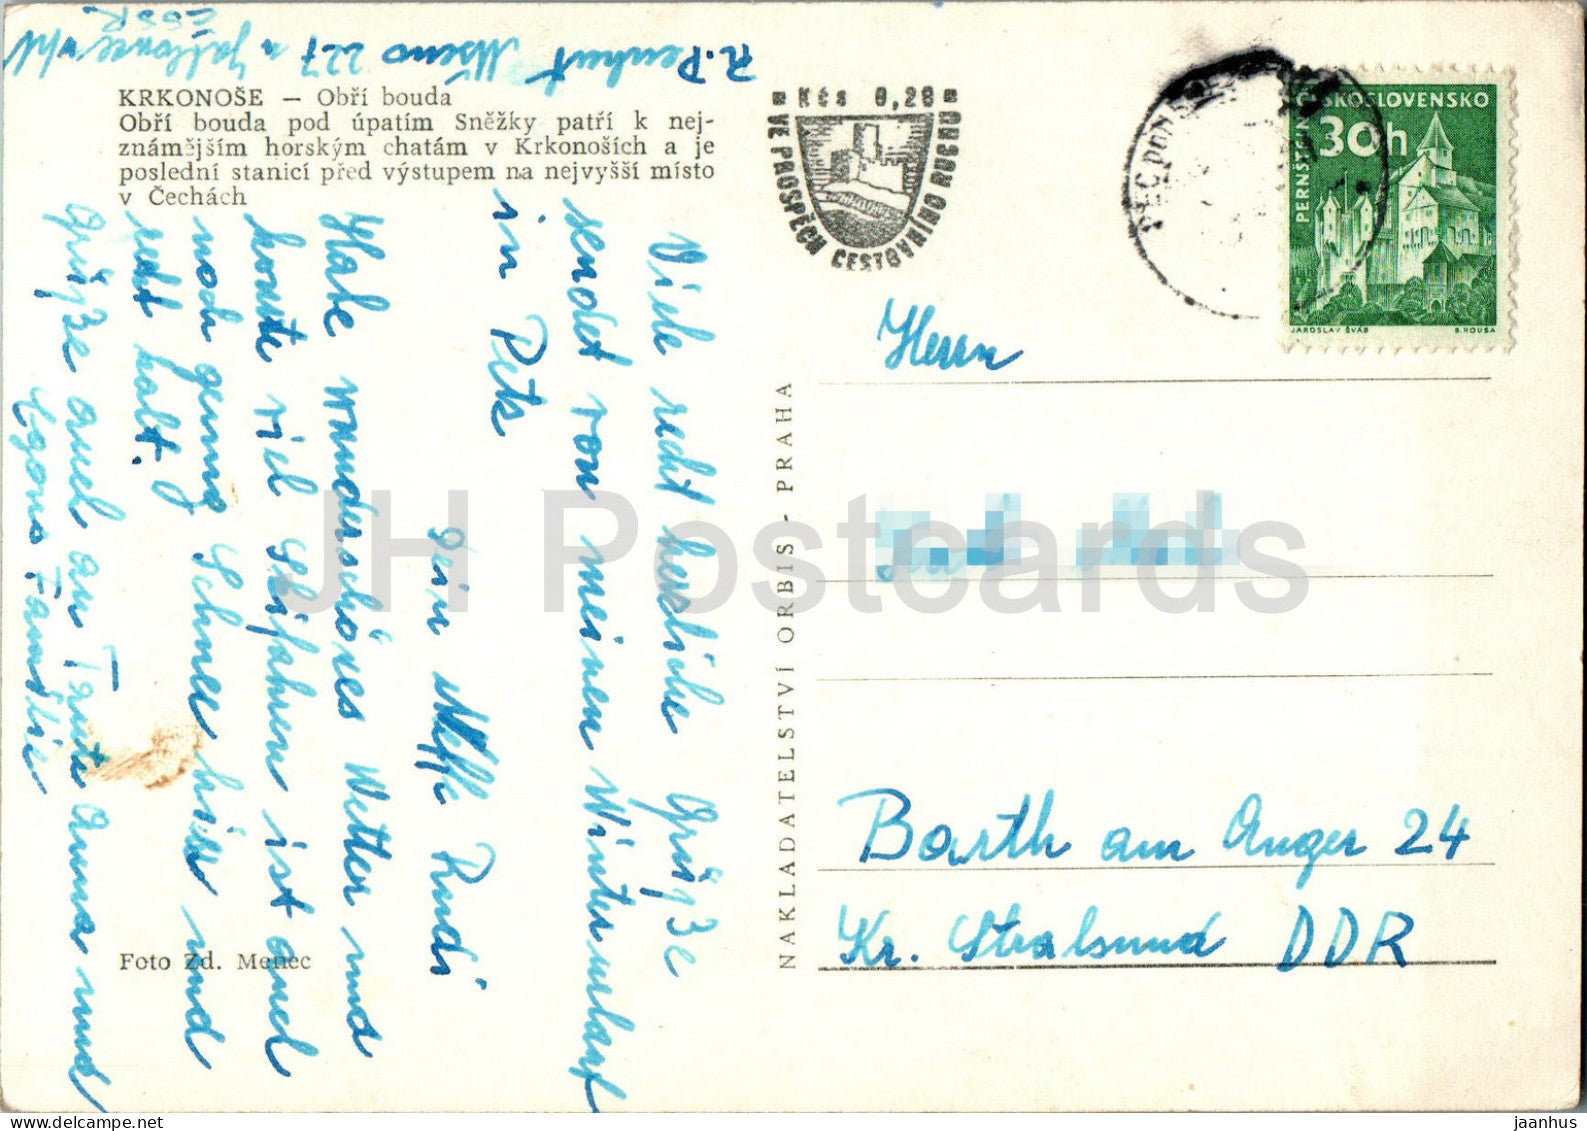 R. Penkert Mšeno 227 n Jablonec n/N
ČSSR.
KRKONOŠE — Obří bouda
Obří bouda pod úpatím Sněžky patří k nej-
známějším horským chatám v Krkonoších a je
poslední stanicí před výstupem na nejvyšší místo
v Čechách
Viele recht herzliche Grüße
sendet von meinen Winterurlaub
in Pets
Dein Neffe Rudi
Habe wunderschönes Wetter und
konnte viel Skifahren ist auch
noch genug Schnee hier und
recht kalt.
Grüße auch an Tante Anna und
Egons Familie
Foto Zd. Menec
NAKLADATELSTVÍ ORBIS - PRAHA
Kčs 0,20
VE PROSPĚCH CESTOVNÍHO RUCHU
PEC POD
ČESKOSLOVENSKO
30h
PERNŠTEJN
JAROSLAV ŠVÁB
B. HOUSA
Herrn
Barth am Anger 24
Kr. Stralsund DDR
JH Postcards
jaanhus